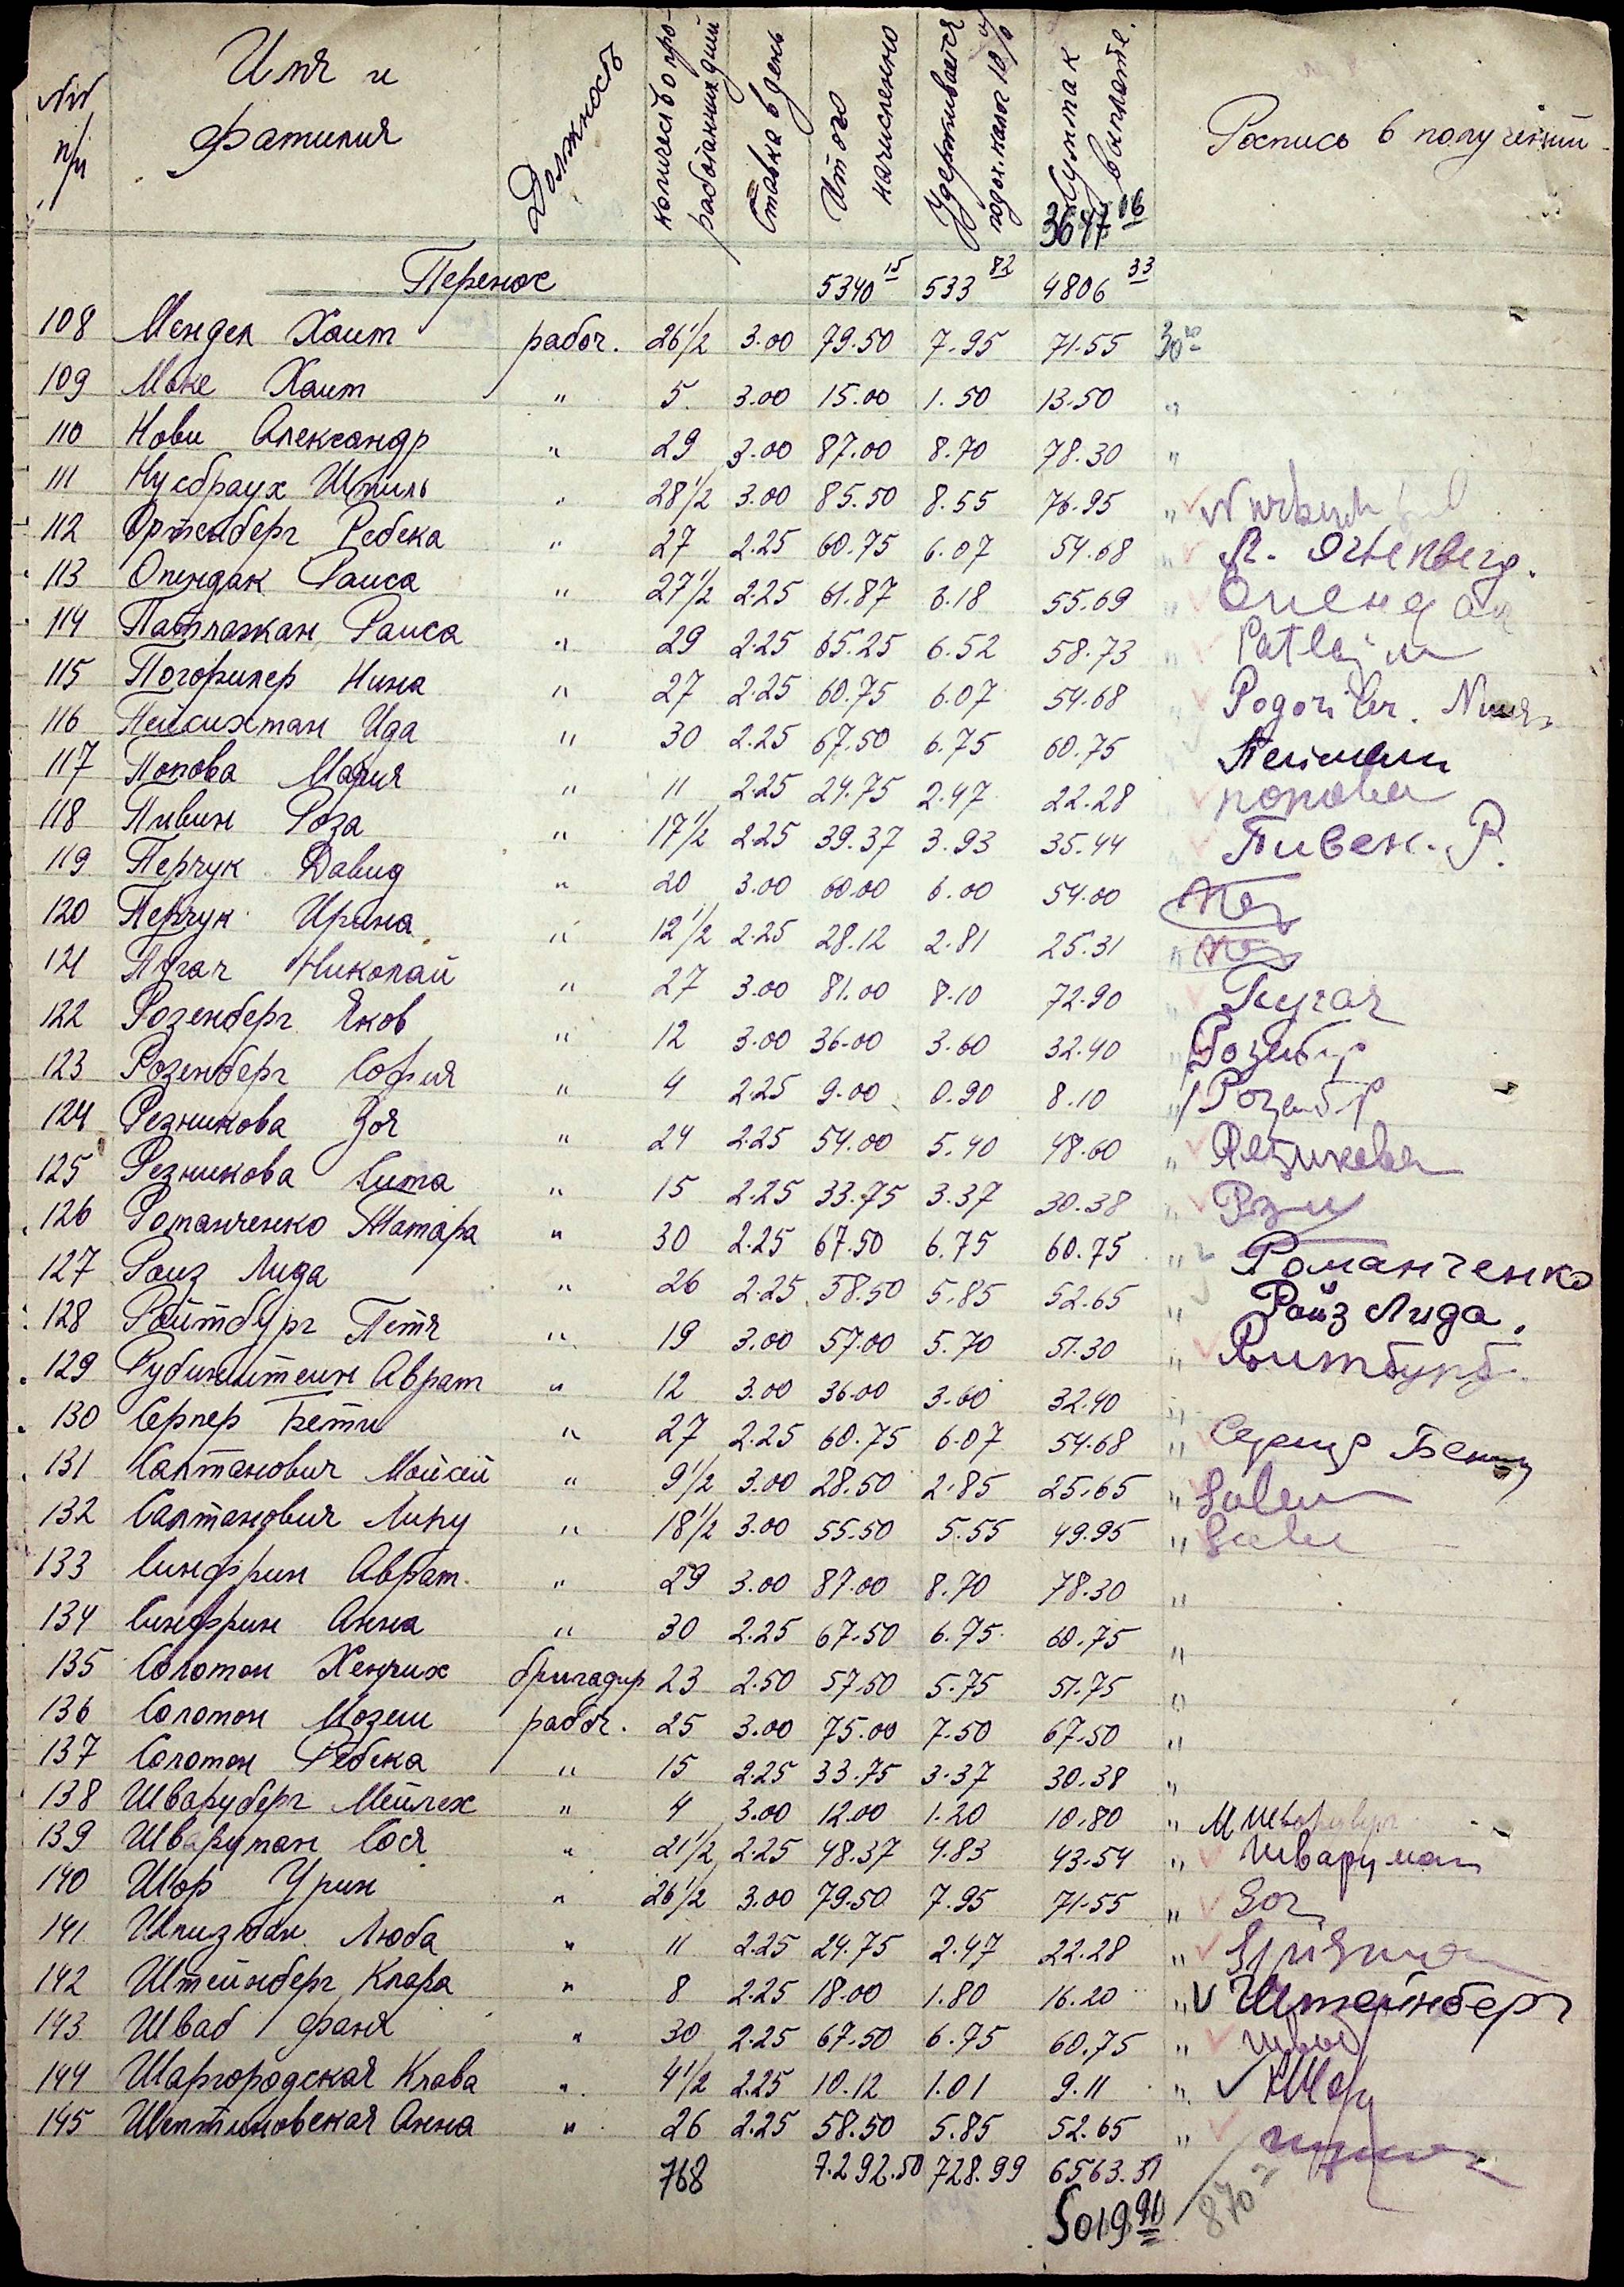 №№ п/п
Имя и фамилия
Должность
количество проработанных дний
Ставка в день
Итого начисленно
Удерживается подох. налог 10%
Сумма к выплате.
Роспись в получении
3647 16
Перенос 5340 15 533 82 4806 33
108 Мендел Хаим рабоч. 26 1/2 3.00 79.50 7.95 71.55
109 Маке Хаим " 5 3.00 15.00 1.50 13.50 "
110 Нови Александр " 29 3.00 87.00 8.70 78.30 "
111 Нусбраух Шмиль " 28 1/2 3.00 85.50 8.55 76.95 "
112 Ортенберг Ребека " 27 2.25 60.75 6.07 54.68 " R. Ortenberg.
113 Опендак Раиса " 27 1/2 2.25 61.87 6.18 55.69 " Опендак
114 Патлажан Раиса " 29 2.25 65.25 6.52 58.73 " Patlajan
115 Погорилер Нина " 27 2.25 60.75 6.07 54.68 " Pogoriler. Nina
116 Пейсихман Ида " 30 2.25 67.50 6.75 60.75
117 Попова Мария " 11 2.25 24.75 2.47 22.28 попова
118 Пивин Роза " 17 1/2 2.25 39.37 3.93 35.44 Пивен. Р.
119 Перчук Давид " 20 3.00 60.00 6.00 54.00
120 Перчук Ирина " 12 1/2 2.25 28.12 2.81 25.31 "
121 Пугач Николай " 27 3.00 81.00 8.10 72.90 Пугач
122 Розенберг Яков " 12 3.00 36.00 3.60 32.40 "
123 Розенберг София " 4 2.25 9.00 0.90 8.10 "
124 Резникова Зоя " 24 2.25 54.00 5.40 48.60 " Резникова
125 Резникова Сима " 15 2.25 33.75 3.37 30.38 "
126 Романченко Тамара " 30 2.25 67.50 6.75 60.75 " Романченко
127 Раиз Лида " 26 2.25 58.50 5.85 52.65 " Райз Лида.
128 Ройтбург Петя " 19 3.00 57.00 5.70 51.30 " Ройтбург.
129 Рубинштеин Аврам " 12 3.00 36.00 3.60 32.40 "
130 Серпер Бетти " 27 2.25 60.75 6.07 54.68 "
131 Салтанович Мойсей " 9 1/2 3.00 28.50 2.85 25.65 "
132 Салтанович Липу " 18 1/2 3.00 55.50 5.55 49.95 "
133 Синфрин Аврам. " 29 3.00 87.00 8.70 78.30 "
134 Синфрин Анна " 30 2.25 67.50 6.75 60.75 "
135 Соломон Хенрих бригадир 23 2.50 57.50 5.75 51.75 "
136 Соломон Мозеш рабоч. 25 3.00 75.00 7.50 67.50 "
137 Соломон Ребека " 15 2.25 33.75 3.37 30.38 "
138 Шварцберг Мейлех " 4 3.00 12.00 1.20 10.80 "
139 Шварцман Сося " 21 1/2 2.25 48.37 4.83 43.54 " Шварцман
140 Шор Урин " 26 1/2 3.00 79.50 7.95 71.55 " Șor
141 Шпизман Люба " 11 2.25 24.75 2.47 22.28 "
142 Штейнберг Клара " 8 2.25 18.00 1.80 16.20 " Штейнберг
143 Шваб Фаня " 30 2.25 67.50 6.75 60.75 "
144 Шаргородская Клава " 4 1/2 2.25 10.12 1.01 9.11 "
145 Шептиновская Анна " 26 2.25 58.50 5.85 52.65 "
768 7.292.50 728.99 6563.51
5019 91
870